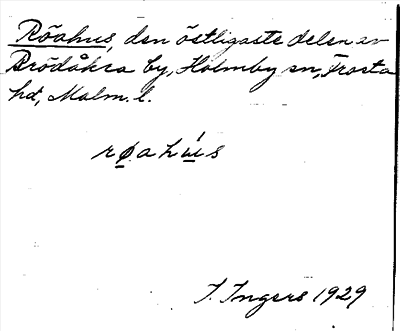 Röahus, den östligaste delen av
Brödåkra by, Holmby sn, Frosta
hd, Malm. l.
røahús
I. Ingers 1929